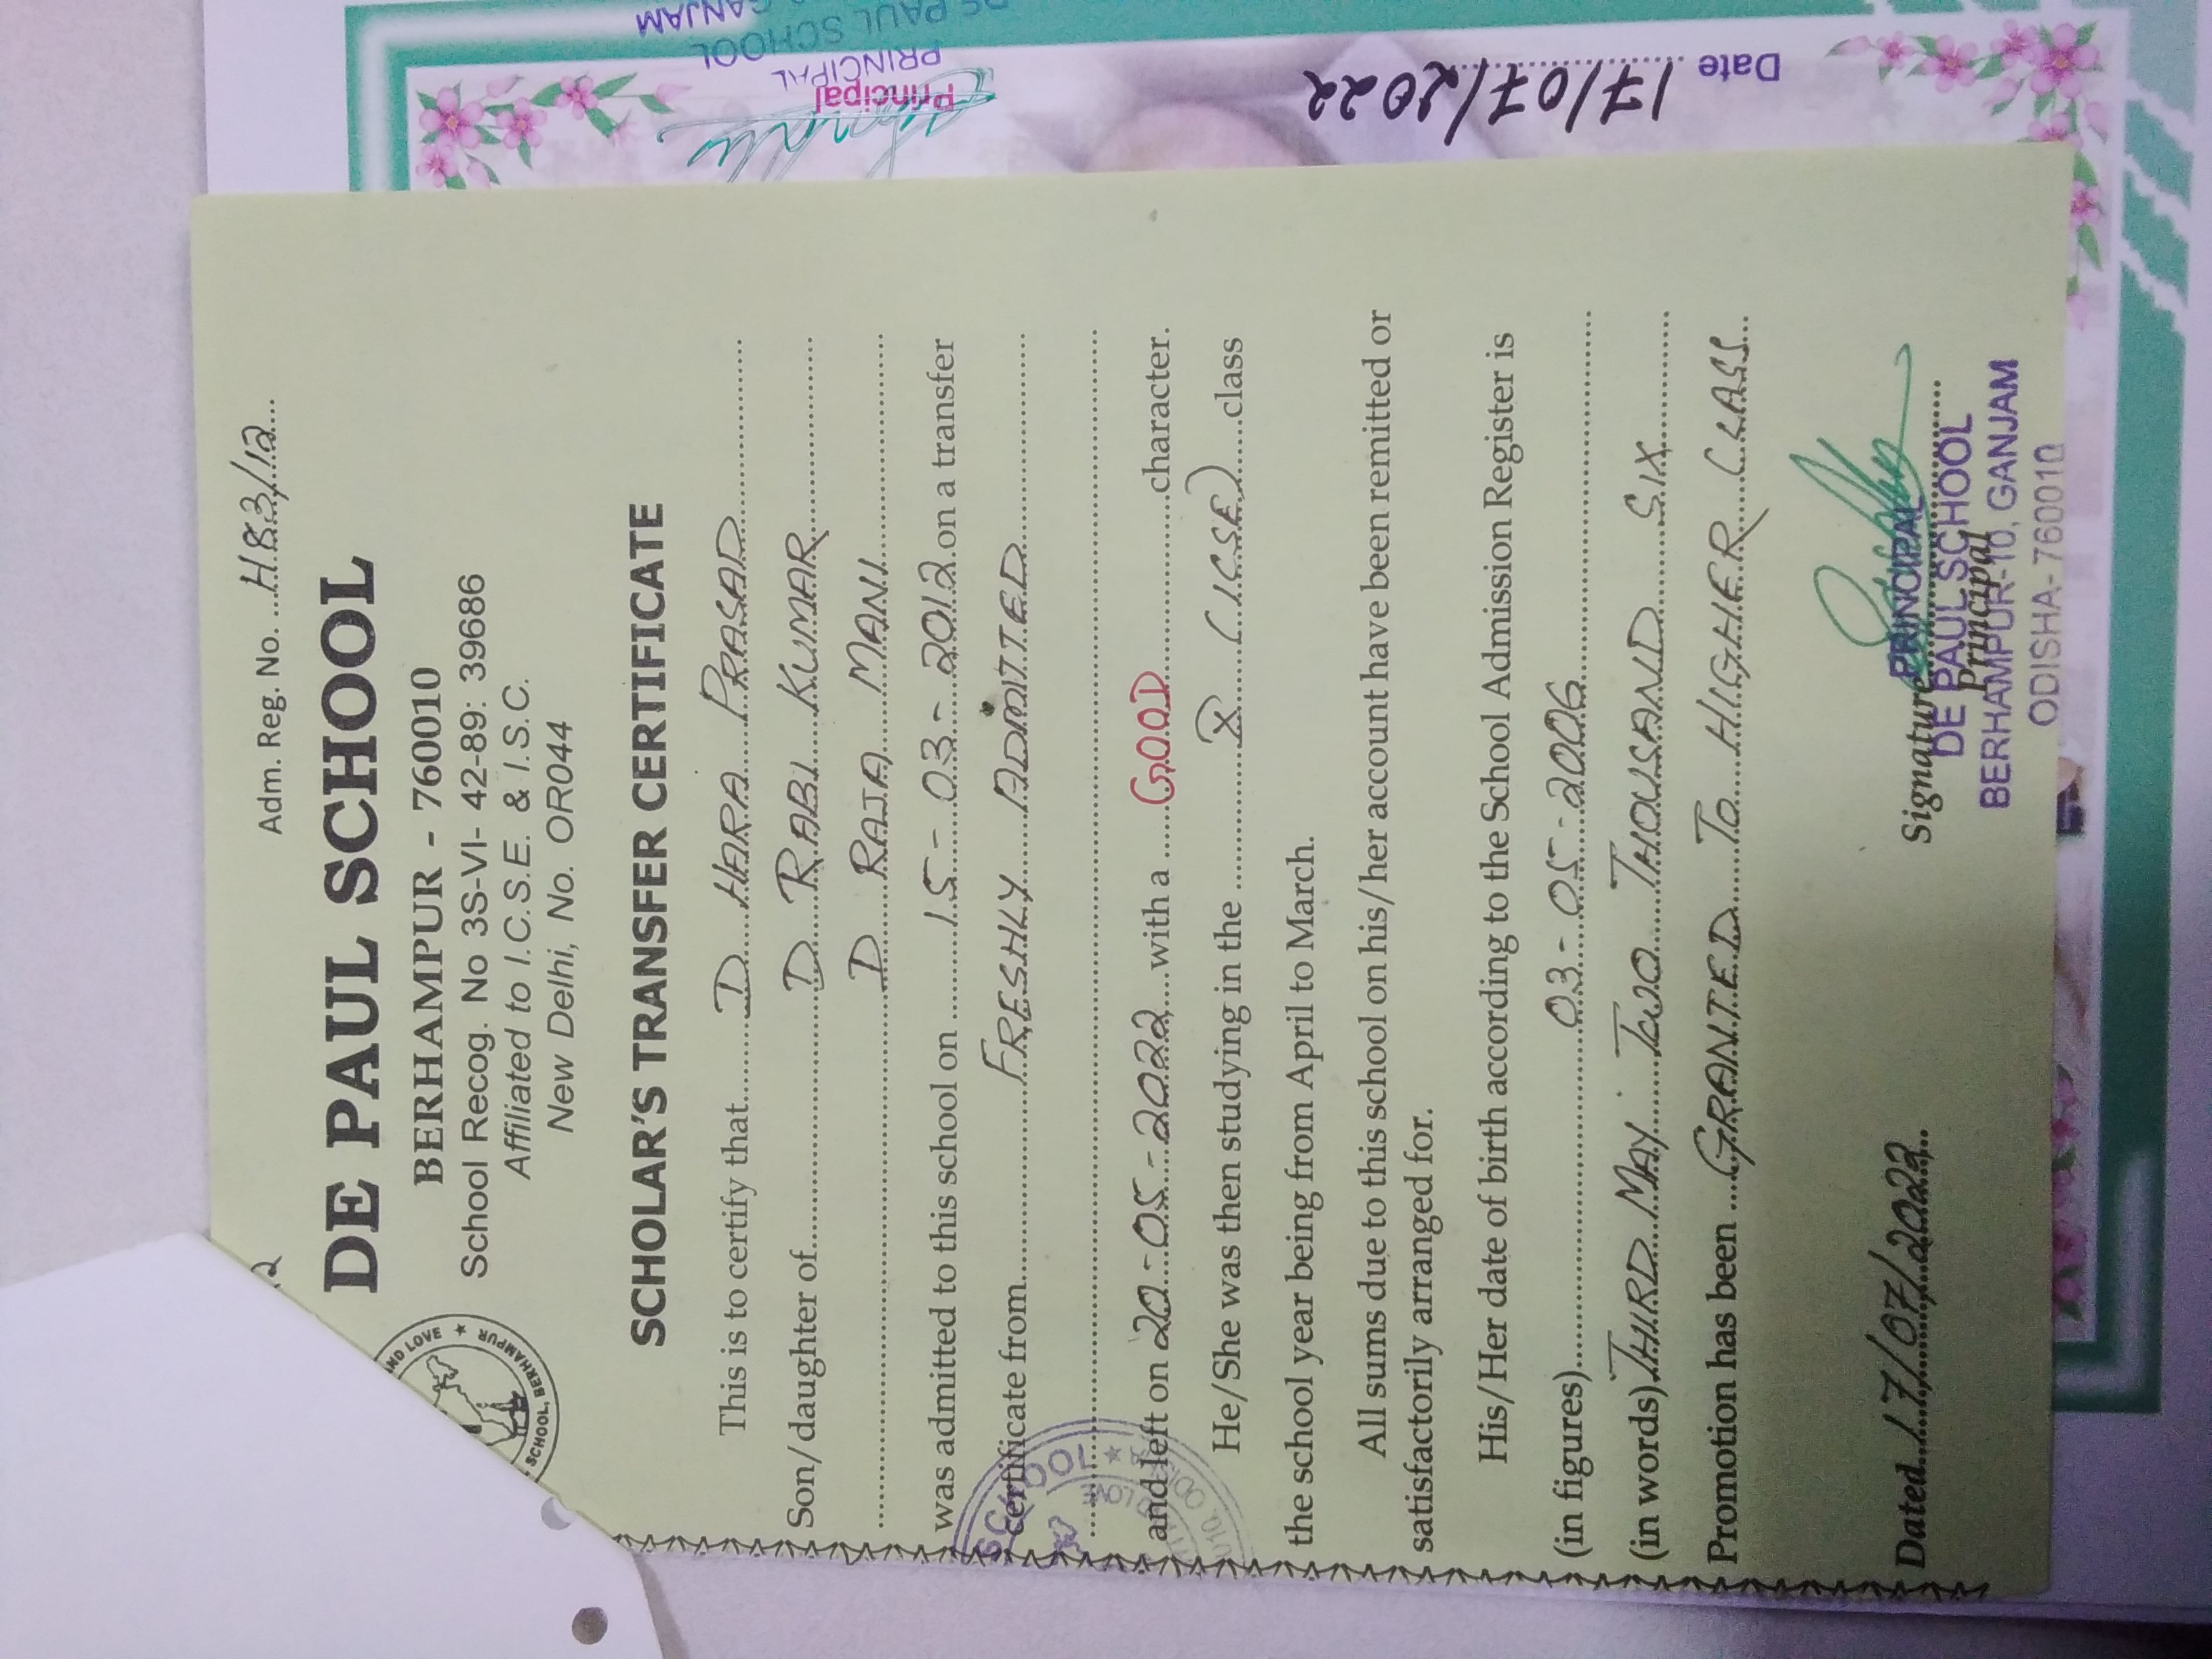 Adm. Reg. No. ...H83/12...
2
DE PAUL SCHOOL
BERHAMPUR - 760010
School Recog. No 3S-VI- 42-89: 39686
Affiliated to I.C.S.E. & I.S.C.
New Delhi, No. OR044
AND LOVE ★ BERHAMPUR
SCHOOL, BERHAMPUR
SCHOLAR'S TRANSFER CERTIFICATE
This is to certify that D HARA PRASAD
Son/daughter of D RABI KUMAR
D RAJA MANI
was admitted to this school on 15-03-2012 on a transfer
certificate from FRESHLY ADMITTED
and left on 20-05-2022 with a GOOD character.
He/She was then studying in the X (ICSE) class
the school year being from April to March.
All sums due to this school on his/her account have been remitted or
satisfactorily arranged for.
His/Her date of birth according to the School Admission Register is
(in figures) 03-05-2006
(in words) THIRD MAY TWO THOUSAND SIX
Promotion has been GRANTED TO HIGHER CLASS
Dated 17/07/2022
Signature
Principal
PRINCIPAL
DE PAUL SCHOOL
BERHAMPUR-10, GANJAM
ODISHA-760010
SCHOOL
LOVE
Date 17/07/2022
Principal
PRINCIPAL
DE PAUL SCHOOL
GANJAM